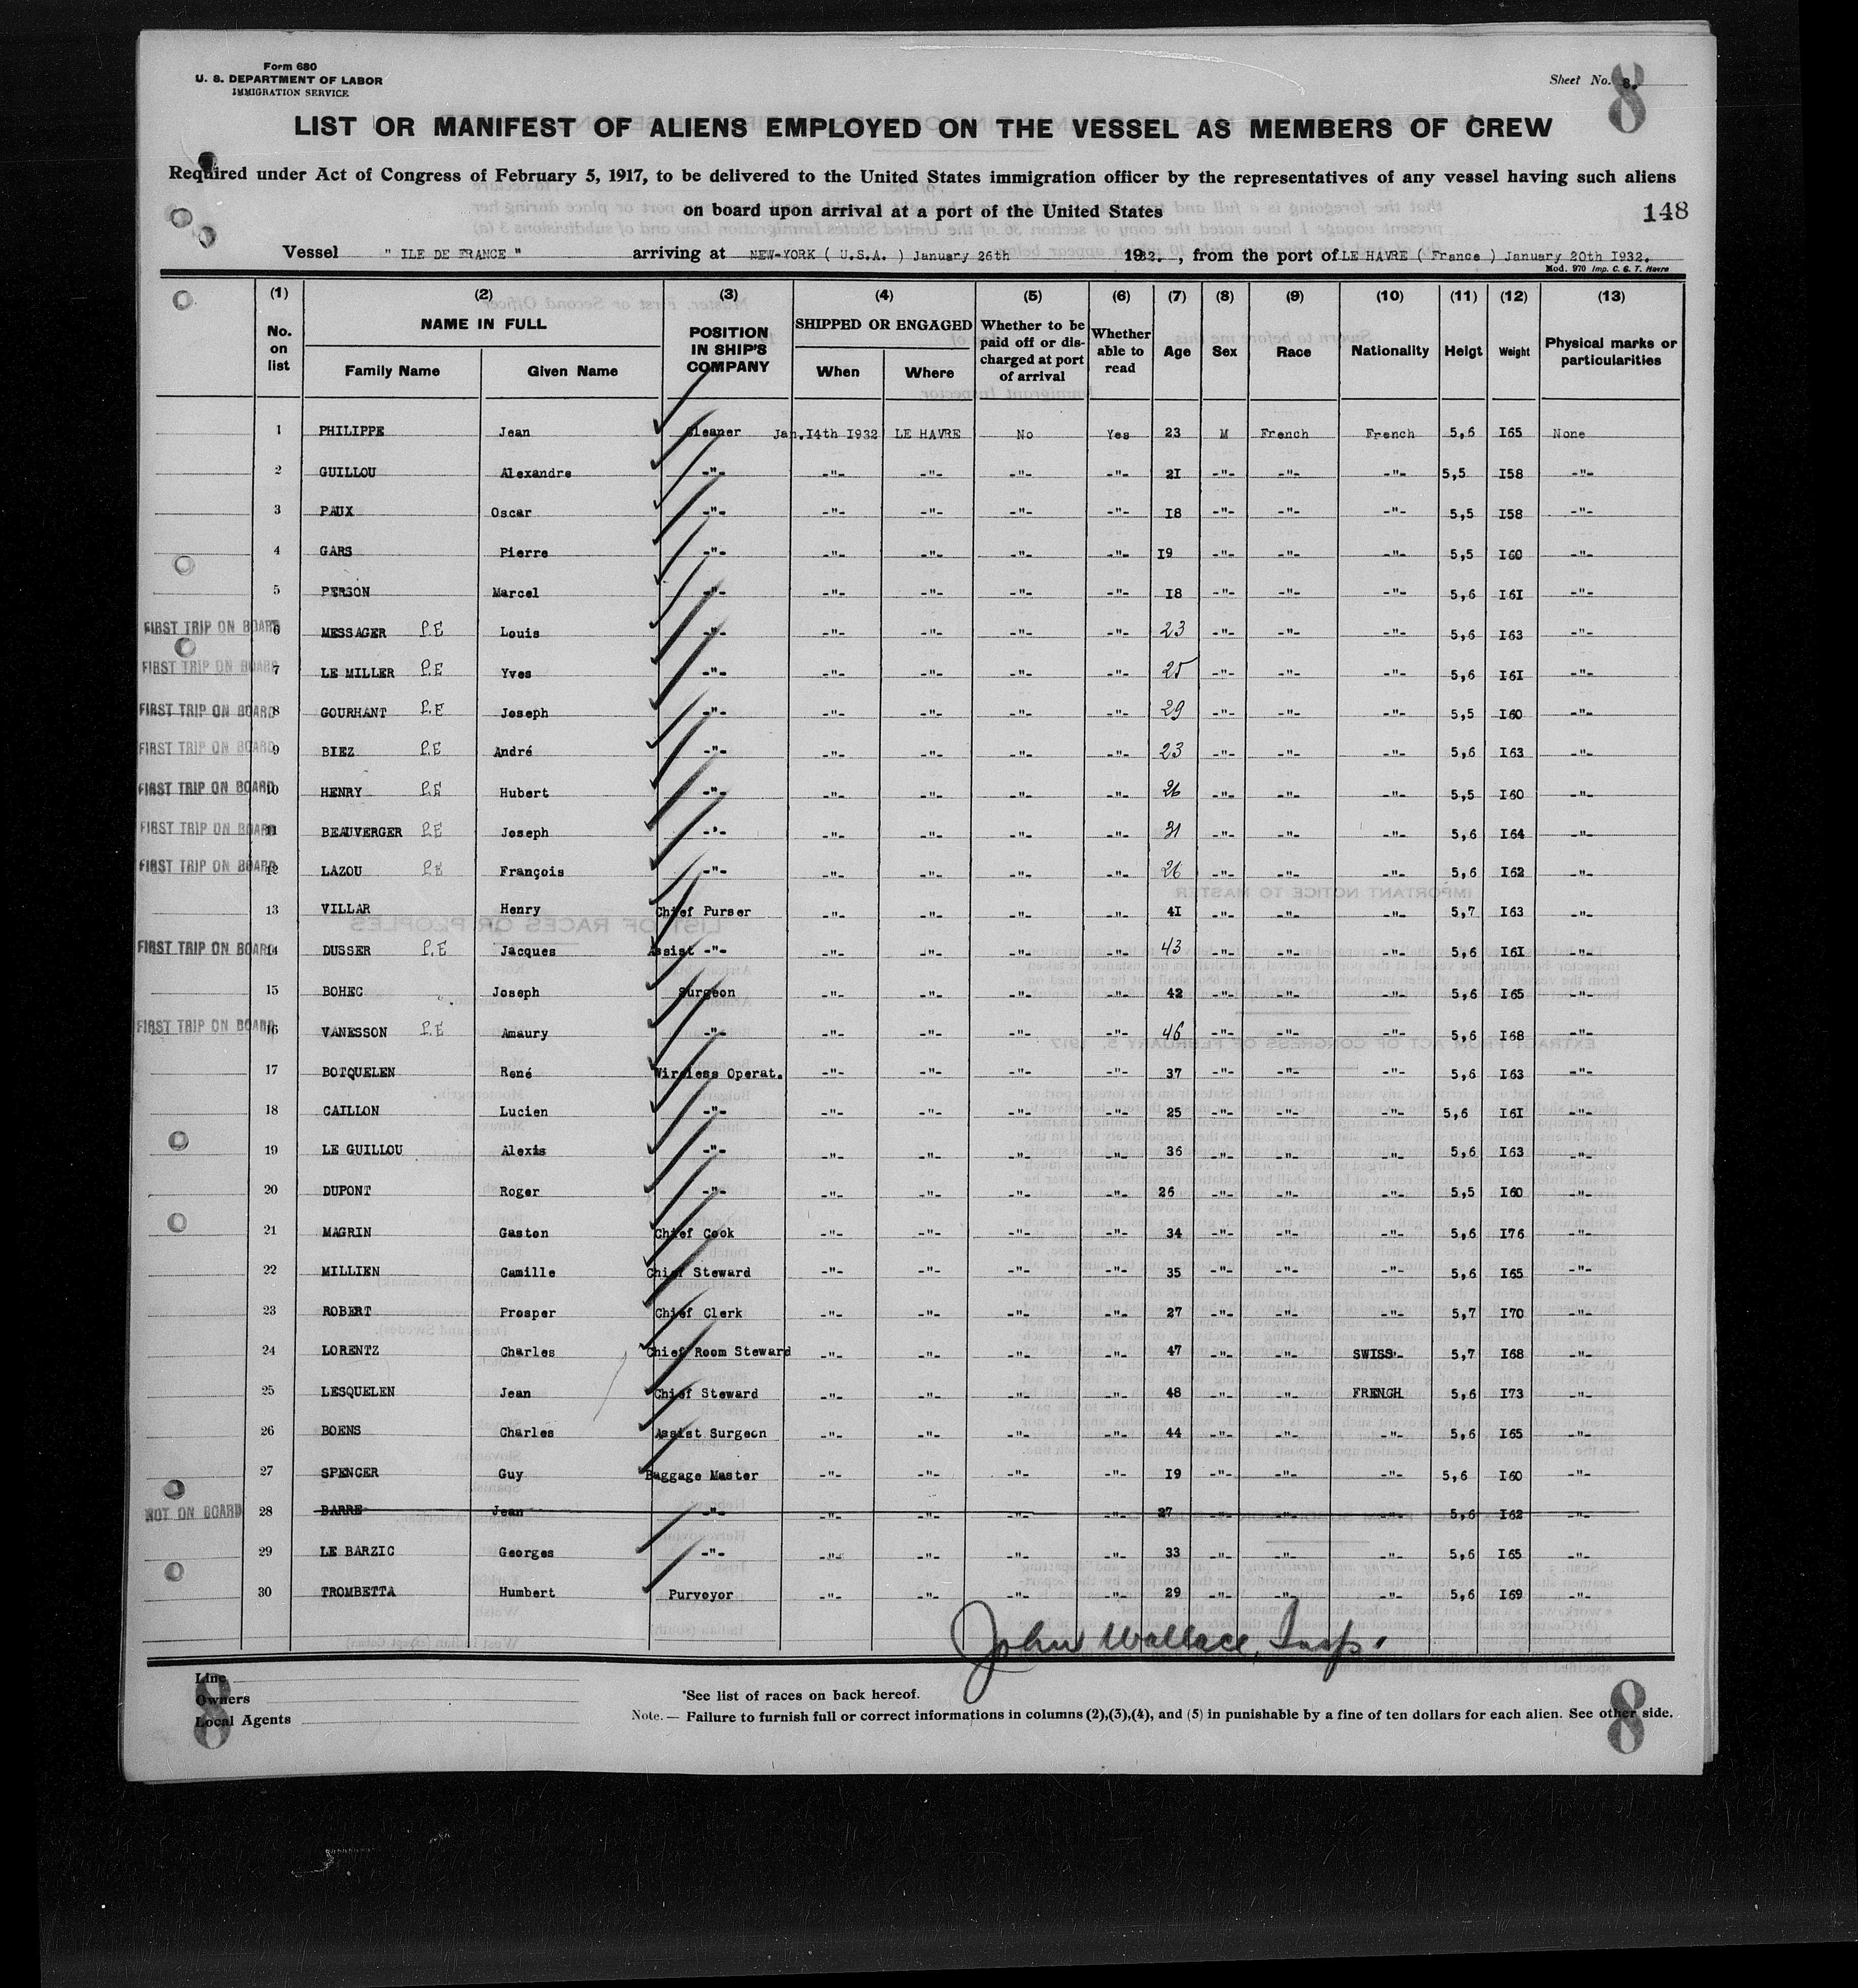 Form 680
U. S. DEPARTMENT OF LABOR
IMMIGRATION SERVICE
Sheet No. 8.
8
LIST OR MANIFEST OF ALIENS EMPLOYED ON THE VESSEL AS MEMBERS OF CREW
Required under Act of Congress of February 5, 1917, to be delivered to the United States immigration officer by the representatives of any vessel having such aliens
on board upon arrival at a port of the United States
148
Vessel " ILE DE FRANCE " arriving at NEW-YORK ( U.S.A. ) January 26th 1932. , from the port of LE HAVRE ( France ) January 20th I932.
Mod. 970 Imp. C. G. T. Havre
(1) (2) (3) (4) (5) (6) (7) (8) (9) (10) (11) (12) (13)
No. on list NAME IN FULL Family Name Given Name POSITION IN SHIP'S COMPANY SHIPPED OR ENGAGED When Where Whether to be paid off or discharged at port of arrival Whether able to read Age Sex Race Nationality Heigt Weight Physical marks or particularities
1 PHILIPPE Jean Cleaner Jan.I4th I932 LE HAVRE No Yes 23 M French French 5,6 I65 None
2 GUILLOU Alexandre -"- -"- -"- -"- -"- 2I -"- -"- -"- 5,5 I58 -"-
3 PAUX Oscar -"- -"- -"- -"- -"- I8 -"- -"- -"- 5,5 I58 -"-
4 GARS Pierre -"- -"- -"- -"- -"- I9 -"- -"- -"- 5,5 I60 -"-
5 PERSON Marcel -"- -"- -"- -"- -"- I8 -"- -"- -"- 5,6 I6I -"-
FIRST TRIP ON BOARD 6 MESSAGER P.E Louis -"- -"- -"- -"- -"- 23 -"- -"- -"- 5,6 I63 -"-
FIRST TRIP ON BOARD 7 LE MILLER P.E Yves -"- -"- -"- -"- -"- 25 -"- -"- -"- 5,6 I6I -"-
FIRST TRIP ON BOARD 8 GOURHANT P.E Joseph -"- -"- -"- -"- -"- 29 -"- -"- -"- 5,5 I60 -"-
FIRST TRIP ON BOARD 9 BIEZ P.E André -"- -"- -"- -"- -"- 23 -"- -"- -"- 5,6 I63 -"-
FIRST TRIP ON BOARD 10 HENRY P.E Hubert -"- -"- -"- -"- -"- 26 -"- -"- -"- 5,5 I60 -"-
FIRST TRIP ON BOARD 11 BEAUVERGER P.E Joseph -"- -"- -"- -"- -"- 31 -"- -"- -"- 5,6 I64 -"-
FIRST TRIP ON BOARD 12 LAZOU P.E François -"- -"- -"- -"- -"- 26 -"- -"- -"- 5,6 I62 -"-
13 VILLAR Henry Chief Purser -"- -"- -"- -"- 4I -"- -"- -"- 5,7 I63 -"-
FIRST TRIP ON BOARD 14 DUSSER P.E Jacques Assist -"- -"- -"- -"- -"- 43 -"- -"- -"- 5,6 I6I -"-
15 BOHEC Joseph Surgeon -"- -"- -"- -"- 42 -"- -"- -"- 5,6 I65 -"-
FIRST TRIP ON BOARD 16 VANESSON P.E Amaury -"- -"- -"- -"- -"- 46 -"- -"- -"- 5,6 I68 -"-
17 BOTQUELEN René Wireless Operat. -"- -"- -"- -"- 37 -"- -"- -"- 5,6 I63 -"-
18 CAILLON Lucien -"- -"- -"- -"- -"- 25 -"- -"- -"- 5,6 I6I -"-
19 LE GUILLOU Alexis -"- -"- -"- -"- -"- 36 -"- -"- -"- 5,6 I63 -"-
20 DUPONT Roger -"- -"- -"- -"- -"- 26 -"- -"- -"- 5,5 I60 -"-
21 MAGRIN Gaston Chief Cook -"- -"- -"- -"- 34 -"- -"- -"- 5,6 I76 -"-
22 MILLIEN Camille Chief Steward -"- -"- -"- -"- 35 -"- -"- -"- 5,6 I65 -"-
23 ROBERT Prosper Chief Clerk -"- -"- -"- -"- 27 -"- -"- -"- 5,7 I70 -"-
24 LORENTZ Charles Chief Room Steward -"- -"- -"- -"- 47 -"- -"- SWISS 5,7 I68 -"-
25 LESQUELEN Jean Chief Steward -"- -"- -"- -"- 48 -"- -"- FRENCH 5,6 I73 -"-
26 BOENS Charles Assist Surgeon -"- -"- -"- -"- 44 -"- -"- -"- 5,6 I65 -"-
27 SPENCER Guy Baggage Master -"- -"- -"- -"- I9 -"- -"- -"- 5,6 I60 -"-
NOT ON BOARD 28 BARRE Jean -"- -"- -"- -"- -"- 27 -"- -"- -"- 5,6 I62 -"-
29 LE BARZIC Georges -"- -"- -"- -"- -"- 33 -"- -"- -"- 5,6 I65 -"-
30 TROMBETTA Humbert Purveyor -"- -"- -"- -"- 29 -"- -"- -"- 5,6 I69 -"-
John Wallace, Insp.
Line
Owners
Local Agents
8
*See list of races on back hereof.
Note. — Failure to furnish full or correct informations in columns (2),(3),(4), and (5) in punishable by a fine of ten dollars for each alien. See other side.
8